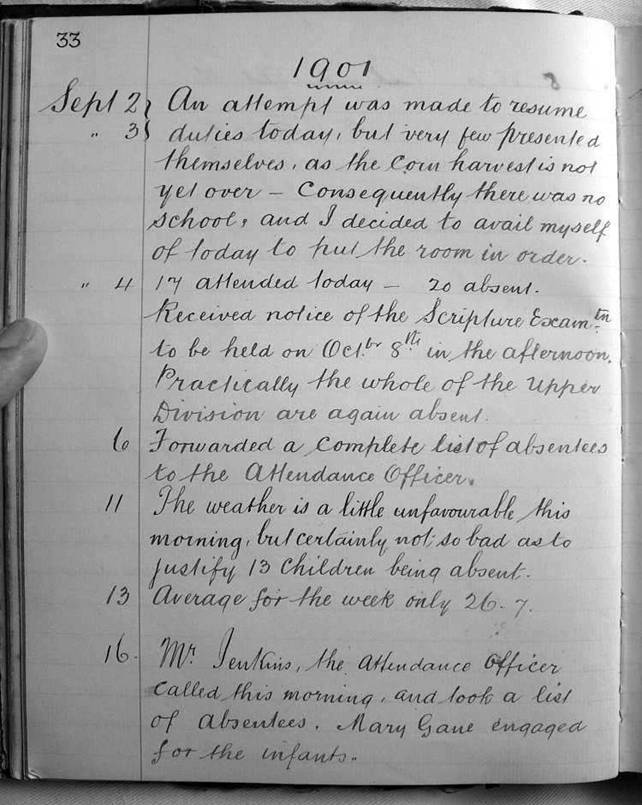 33
1901
Sept 2} An attempt was made to resume
" 3} duties today, but very few presented
themselves, as the Corn harvest is not
yet over – Consequently there was no
School, and I decided to avail myself
of today to put the room in order.
" 4 17 attended today – 20 absent.
Received notice of the Scripture Exam:tn
to be held on Oct.br 8th in the afternoon.
Practically the whole of the Upper
Division are again absent.
6 Forwarded a complete list of absentees
to the Attendance Officer.
11 The weather is a little unfavourable this
morning, but certainly not so bad as to
justify 13 Children being absent.
13 Average for the week only 26.7.
16. Mr. Jenkins, the Attendance Officer
called this morning, and took a list
of absentees. Mary Gane engaged
for the infants.